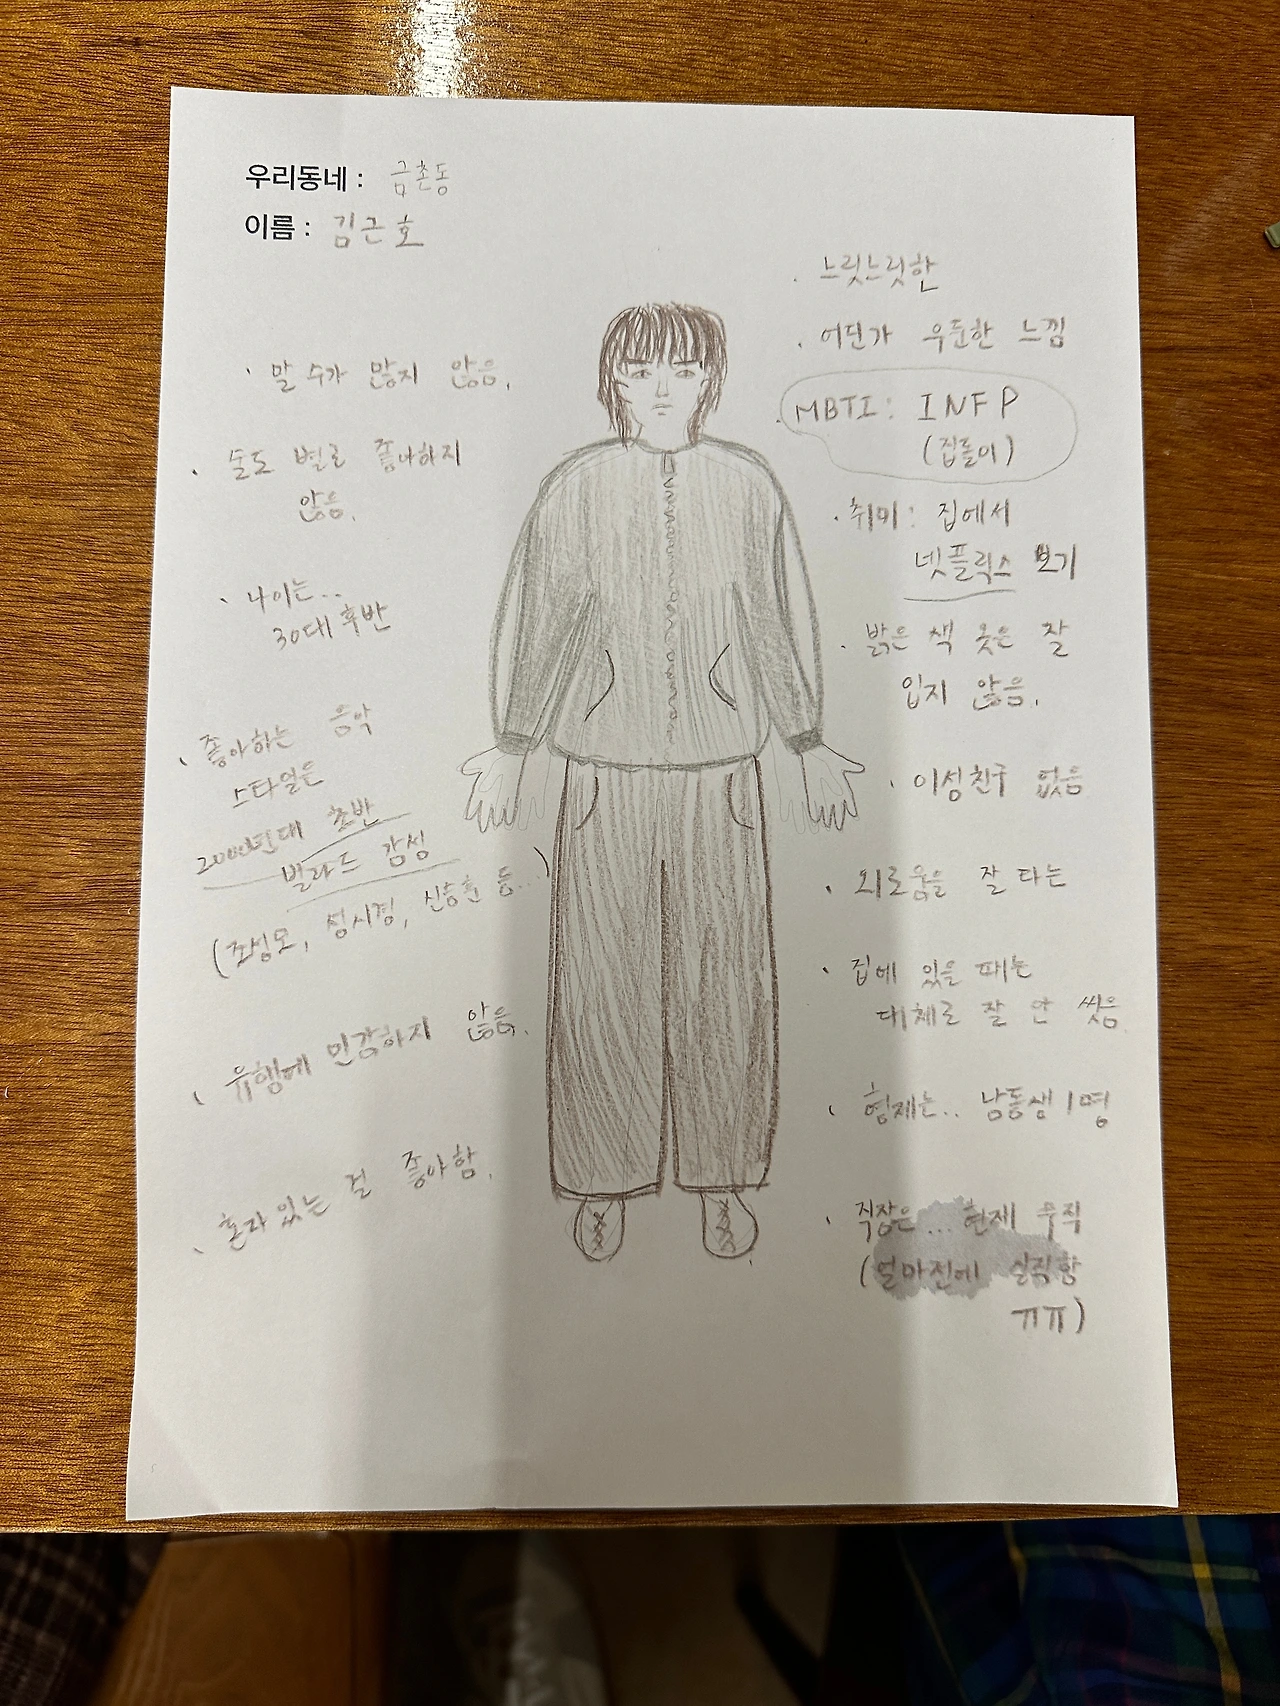 우리동네 : 금촌동
이름 : 김근호
· 말 수가 많지 않음.
· 술도 별로 좋아하지
않음.
· 나이는..
30대 후반
· 좋아하는 음악
스타일은
2000년대 초반
발라드 감성
(조성모, 성시경, 신승훈 등..)
· 유행에 민감하지 않음.
· 혼자 있는 걸 좋아함.
· 느릿느릿한
· 어딘가 우둔한 느낌
· MBTI : INFP
(집돌이)
· 취미 : 집에서
넷플릭스 보기
· 밝은 색 옷은 잘
입지 않음.
· 이성친구 없음
· 외로움을 잘 타는
· 집에 있을 때는
대체로 잘 안 씻음.
· 형제는.. 남동생 1명
· 직장은... 현재 무직
(얼마전에 실직함
ㅠㅠ)